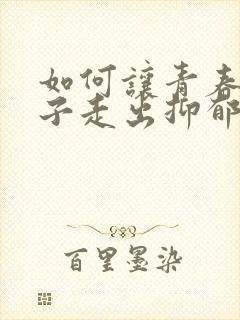 如何讓青春
子走出抑郁
百里墨染